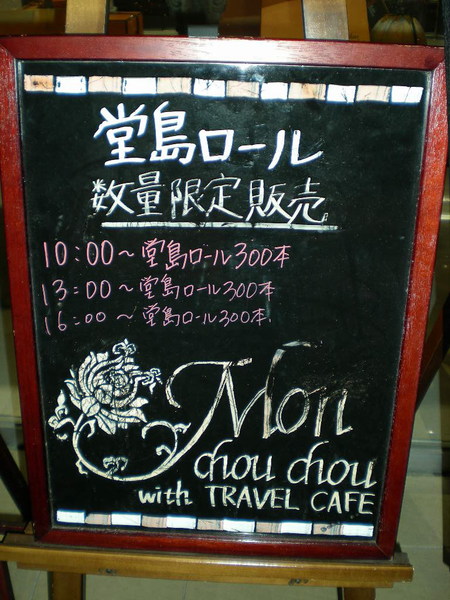 堂島ロール
数量限定販売
10:00～堂島ロール300本
13:00～堂島ロール300本
16:00～堂島ロール300本
Mon
chou chou
with TRAVEL CAFE